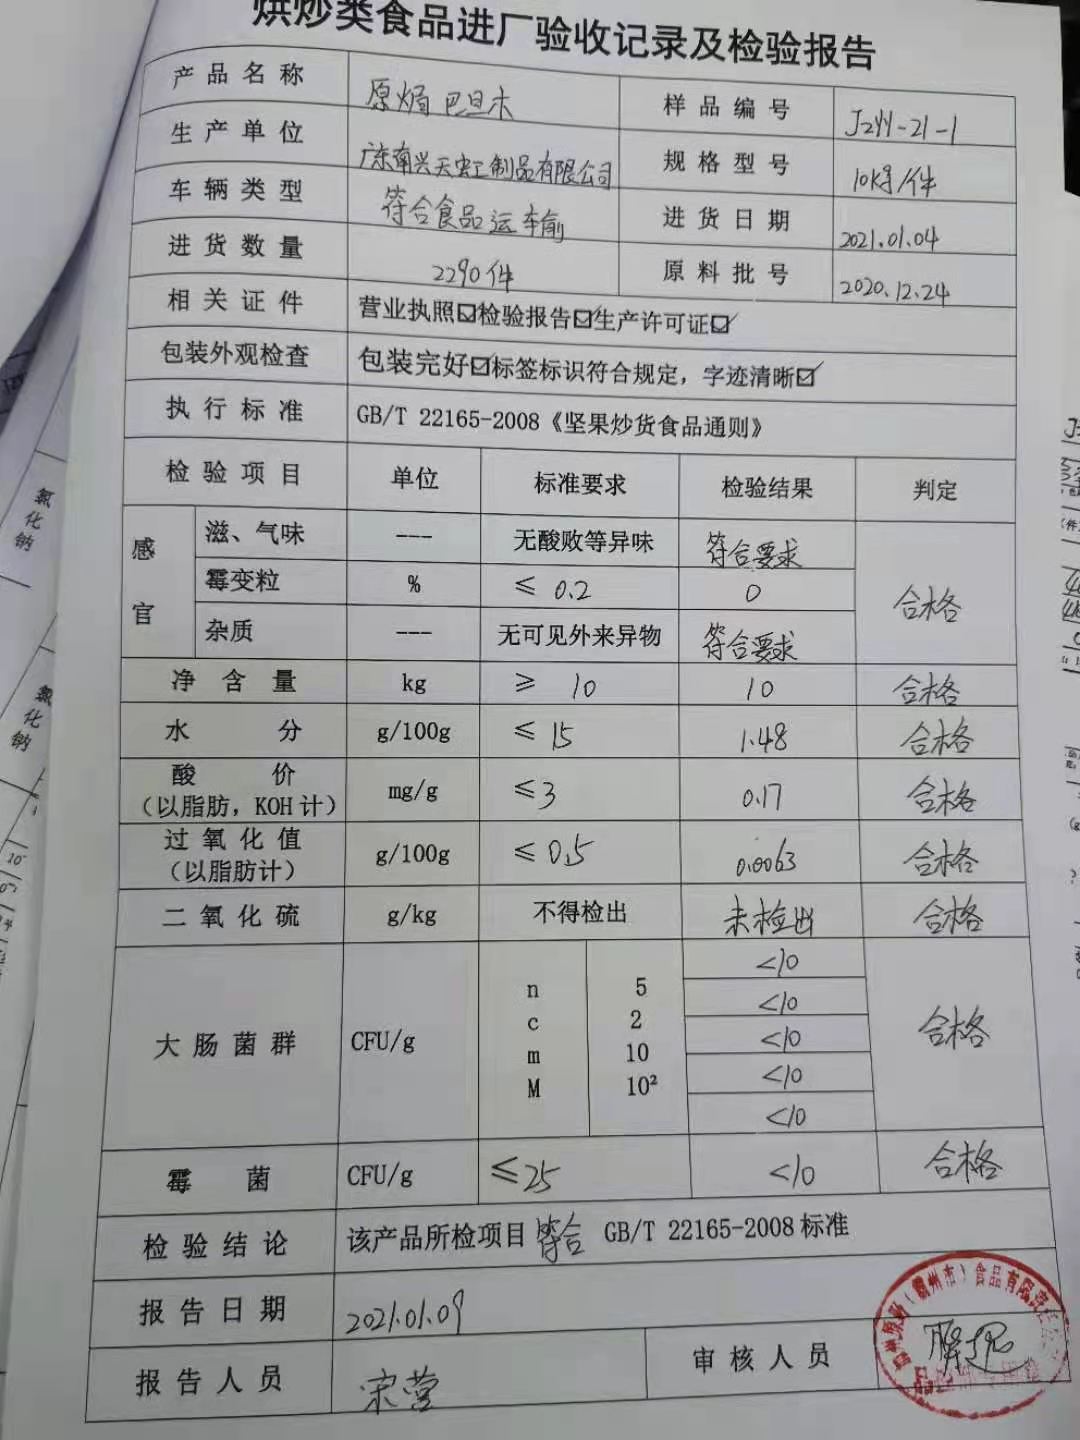 烘炒类食品进厂验收记录及检验报告
产品名称 原焗巴旦木 样品编号 JZYY-21-1
生产单位 广东南兴天虹制品有限公司 规格型号 10kg/件
车辆类型 符合食品运输 进货日期 2021.01.04
进货数量 2290件 原料批号 2020.12.24
相关证件 营业执照☑检验报告☑生产许可证☑
包装外观检查 包装完好☑标签标识符合规定，字迹清晰☑
执行标准 GB/T 22165-2008《坚果炒货食品通则》
检验项目 单位 标准要求 检验结果 判定
感官 滋、气味 --- 无酸败等异味 符合要求 合格
霉变粒 % ≤ 0.2 0
杂质 --- 无可见外来异物 符合要求
净含量 kg ≥ 10 10 合格
水分 g/100g ≤ 15 1.48 合格
酸价 mg/g ≤3 0.17 合格
（以脂肪，KOH计）
过氧化值 g/100g ≤ 0.5 0.0063 合格
（以脂肪计）
二氧化硫 g/kg 不得检出 未检出 合格
大肠菌群 CFU/g n 5 <10 合格
c 2 <10
m 10 <10
M 10² <10
<10
霉菌 CFU/g ≤25 <10 合格
检验结论 该产品所检项目符合 GB/T 22165-2008标准
报告日期 2021.01.09
报告人员 宋莹 审核人员
原野（霸州市）食品有限责任
氯化钠
氯化钠